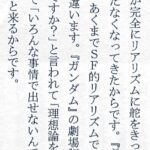 が完全にリアリズムに舵をきっ
たくなくなってきたからです。『
あくまでSF的リアリズムで
違います。『ガンダム』の劇場
すか?」と言われて「理想論を
て「いろんな事情で出せないん
と来るからです。